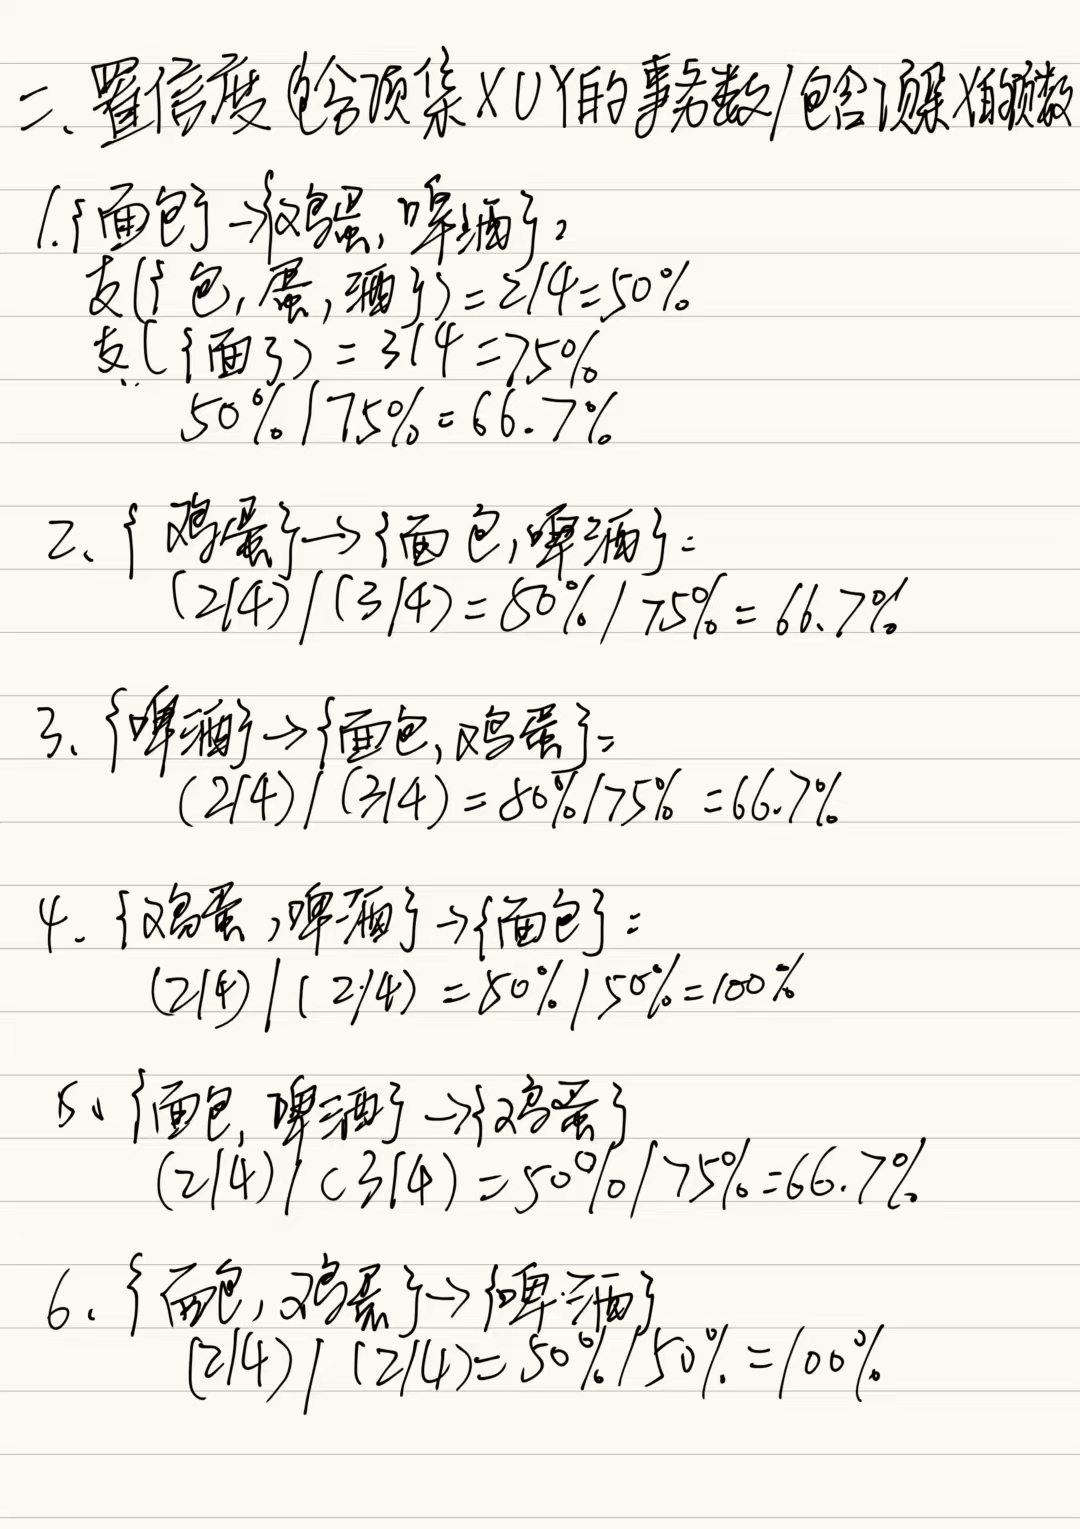 二、置信度 包含项集XUY的事务数/包含项集X的项数
1.{面包}→{鸡蛋,啤酒}:
支({包,蛋,酒})=2/4=50%
支({面})=3/4=75%
50%/75%=66.7%
2、{鸡蛋}→{面包,啤酒}:
(2/4)/(3/4)=50%/75%=66.7%
3、{啤酒}→{面包,鸡蛋}=
(2/4)/(3/4)=50%/75%=66.7%
4.{鸡蛋,啤酒}→{面包}:
(2/4)/(2/4)=50%/50%=100%
5、{面包,啤酒}→{鸡蛋}
(2/4)/(3/4)=50%/75%=66.7%
6、{面包,鸡蛋}→{啤酒}
(2/4)/(2/4)=50%/50%=100%